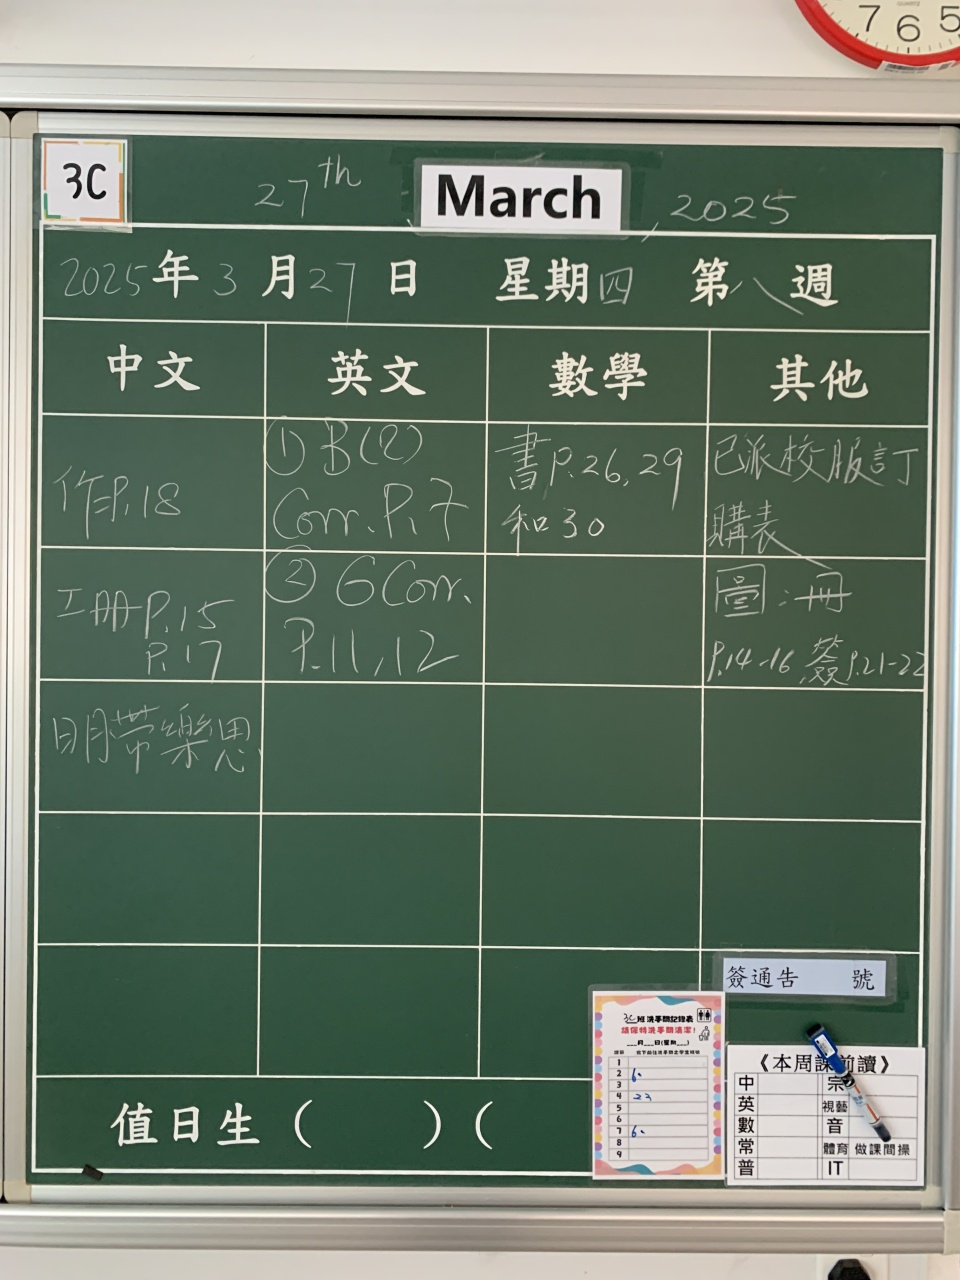 7 6 5
3C
27th March, 2025
2025年3月27日 星期四 第八週
中文 英文 數學 其他
作P.18
① B(2)
Corr. P.7
書P.26,29
和30
已派校服訂
購表
工冊P.15
P.17
② G Corr.
P.11,12
圖:冊
P.14-16, 簽P.21-22
明帶樂思
簽通告 號
3C班洗手間記錄表
請保持洗手間清潔!
___月___日(星期___)
1
2 6.
3
4 23
5
6
7 6.
8
9
《本周課前讀》
中 宗
英 視藝
數 音
常 體育 做課間操
普 IT
值日生( )(